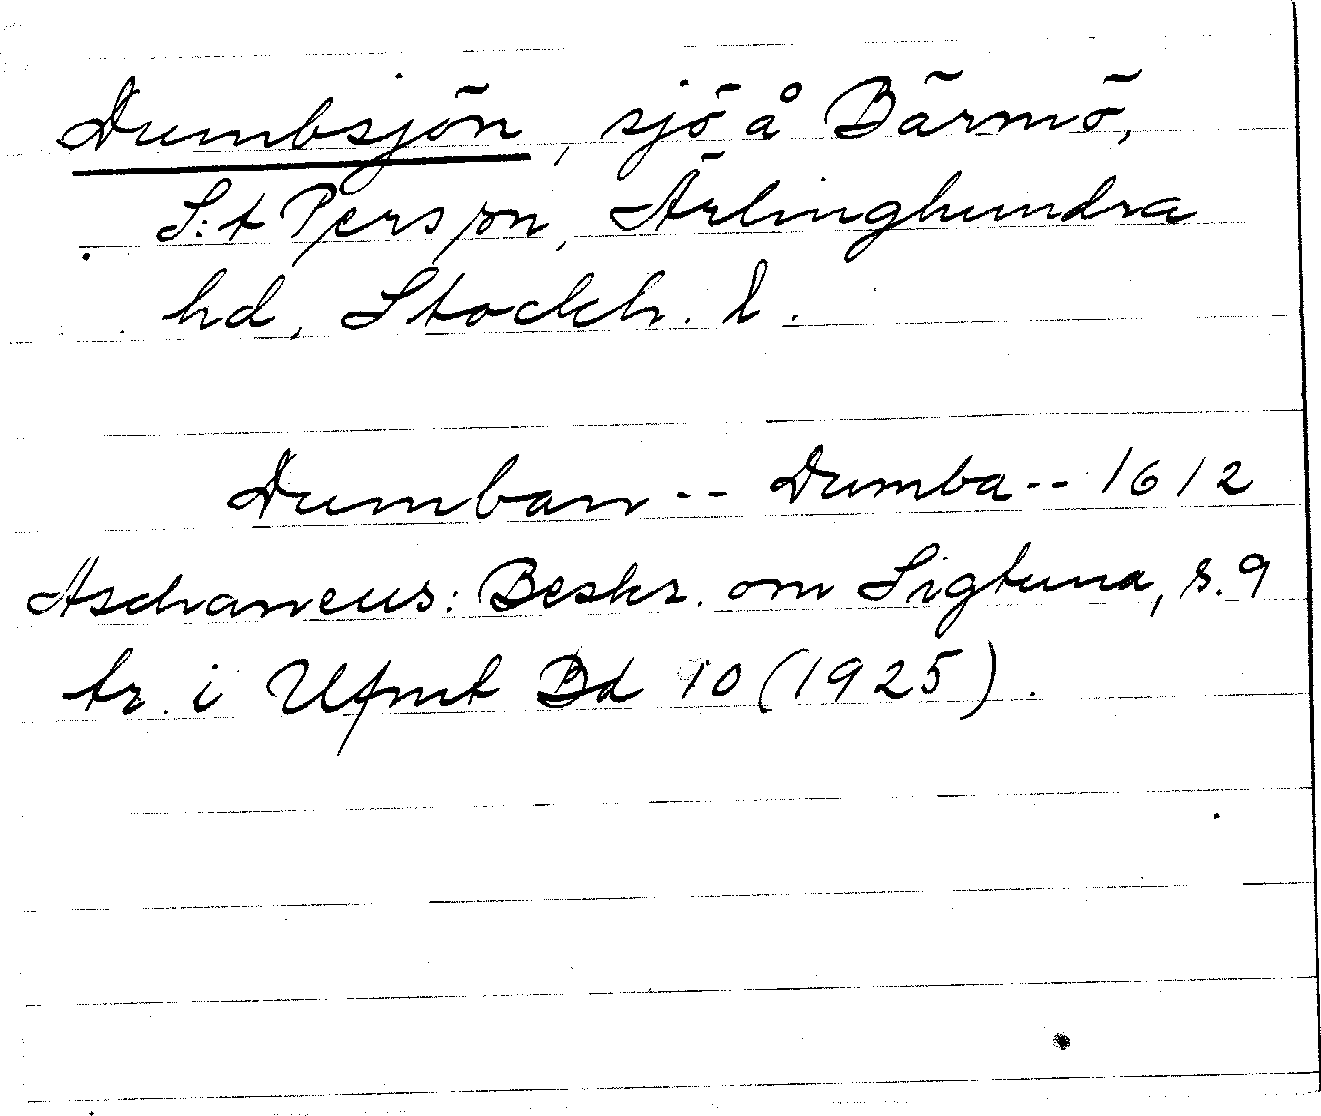 Dumbsjön, sjö å Bärmö,
S:t Pers sn, Ärlinghundra
hd, Stockh. l.
Dumban -- Dumba -- 1612
Aschaneus: Beskr. om Sigtuna, s. 9
tr. i Ufmt Bd 10 (1925).